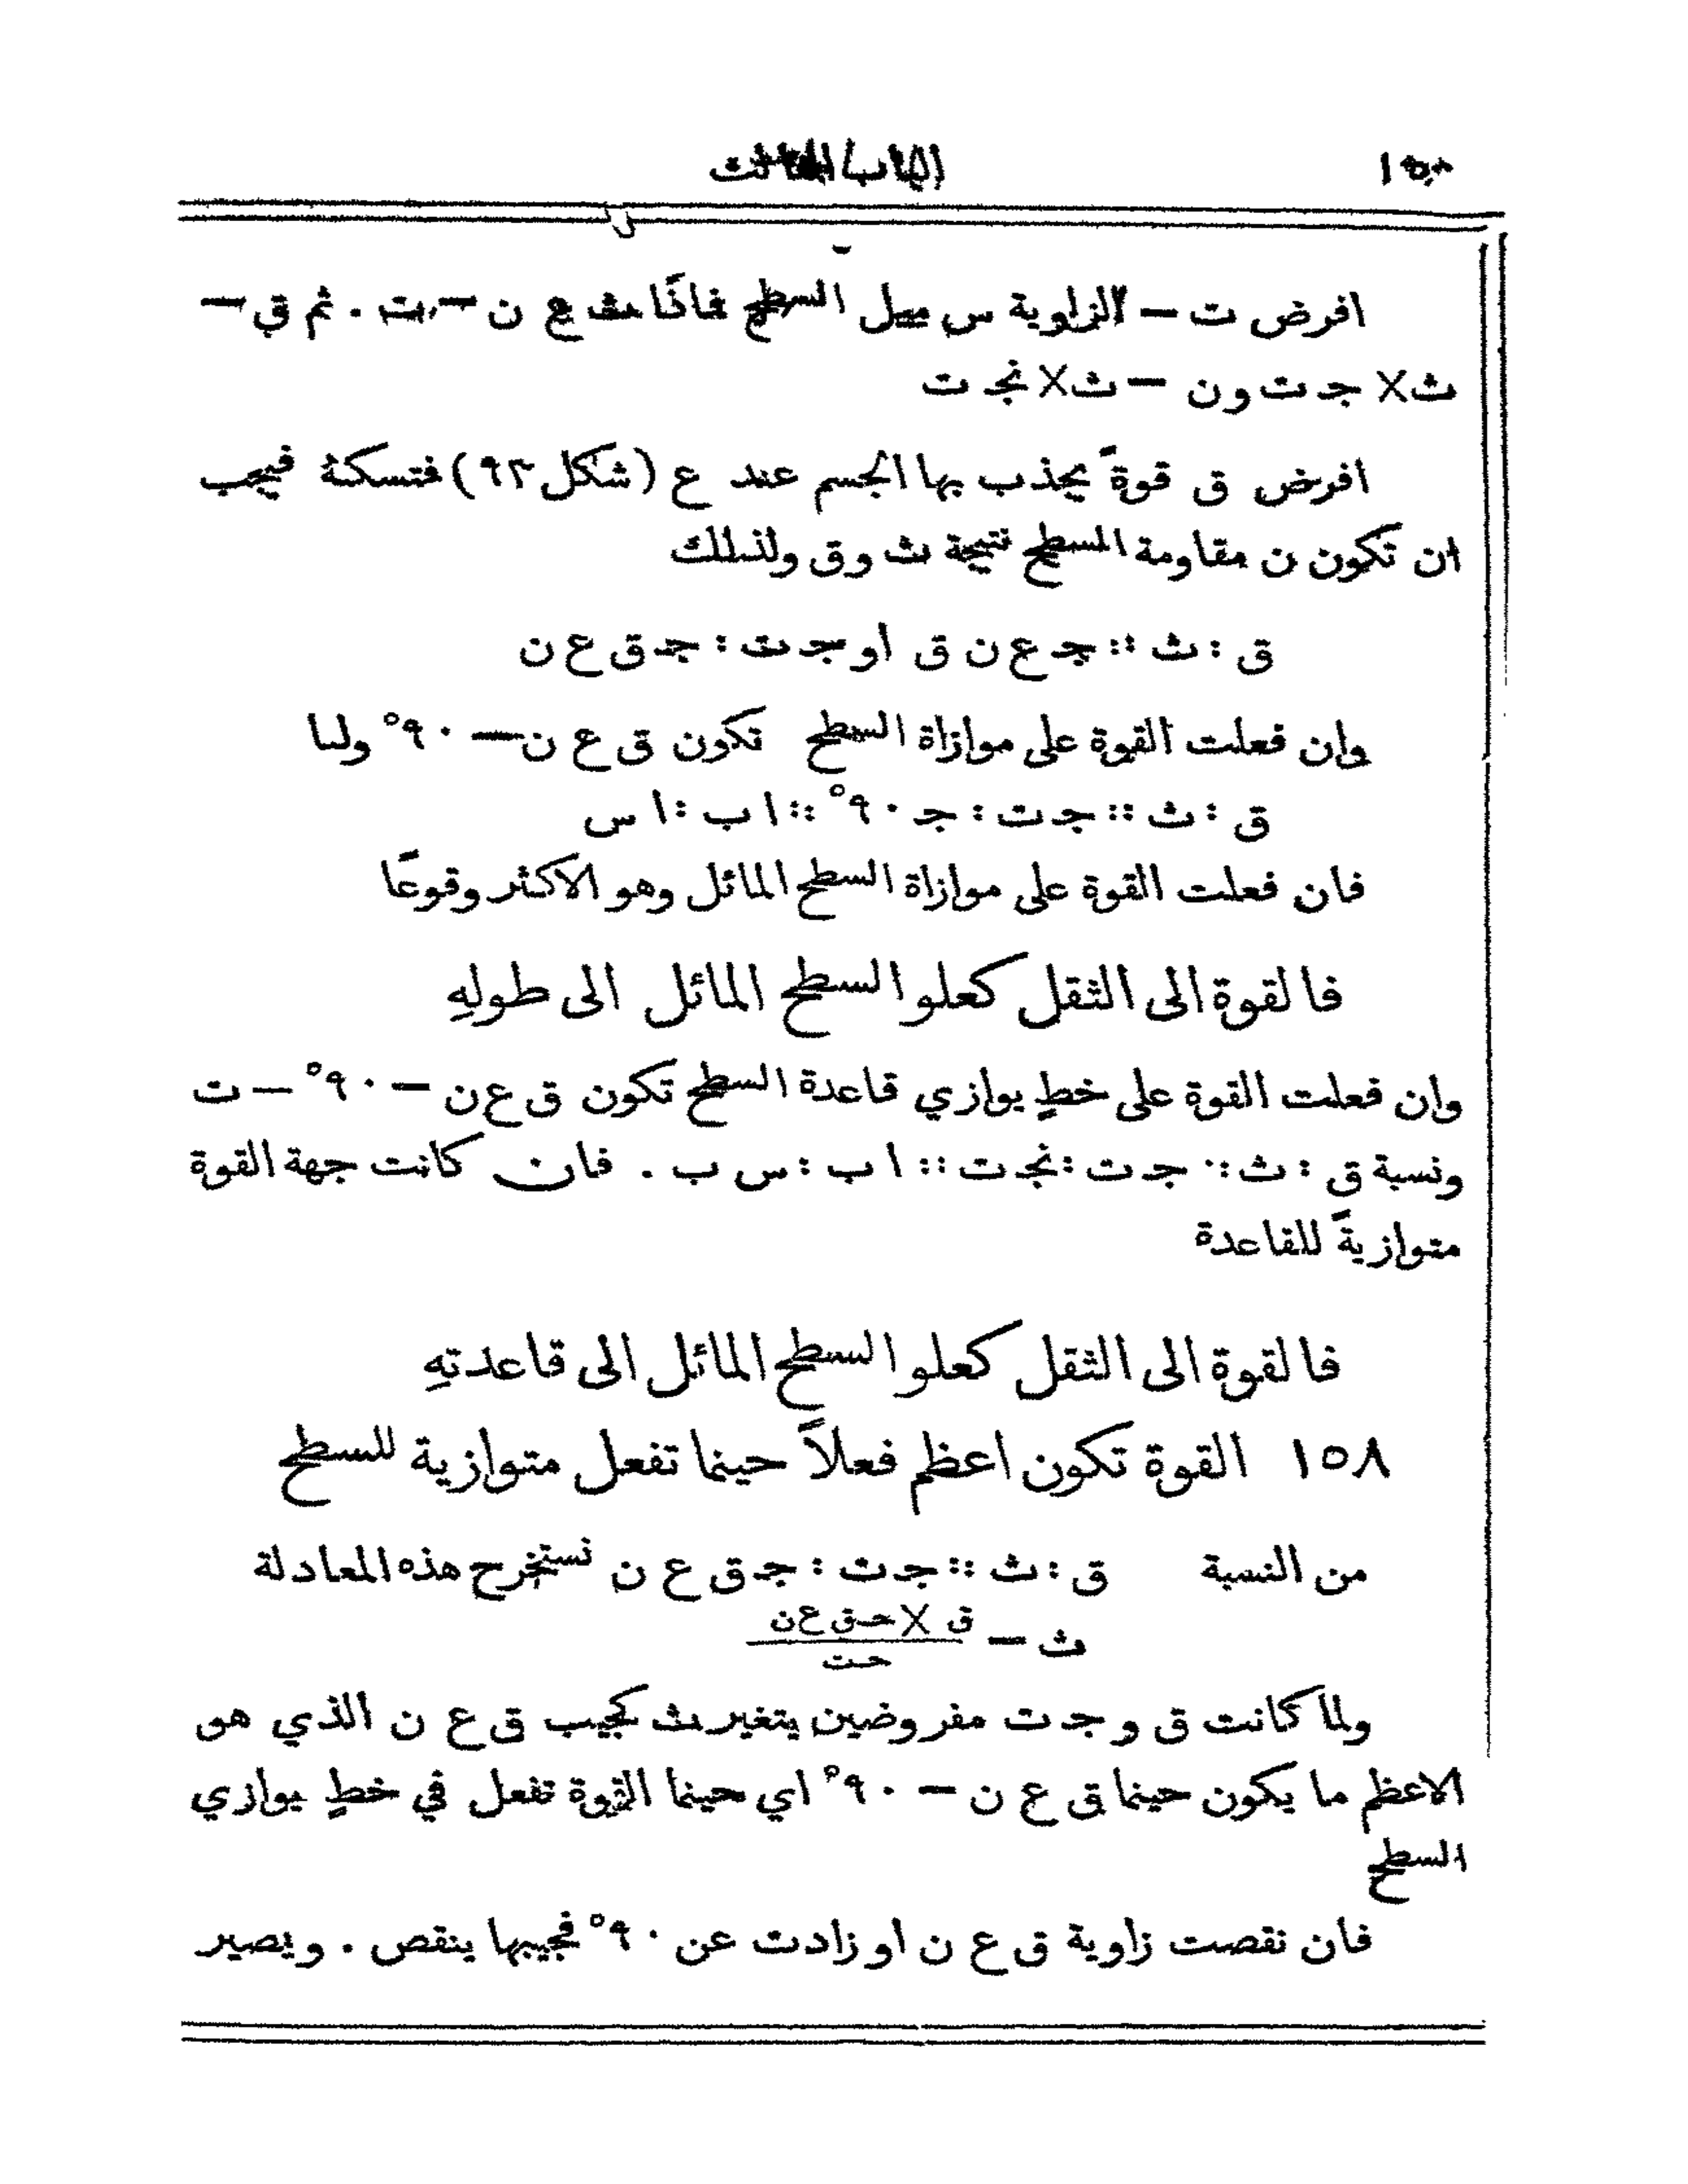 الباب الثالث
افرض ت — الزاوية س ميل السطح فاذًا ث ع ن — ت . ثم ق —
ث X جـ ت و ن — ث X نجـ ت
افرض ق قوةً يجذب بها الجسم عند ع (شكل ٩٢) فتسكنهُ فيجب
ان تكون ن مقاومة السطح نتيجة ث و ق ولذلك
ق : ث :: جـ ع ن ق او جـ ت : جـ ق ع ن
وان فعلت القوة على موازاة السطح تكون ق ع ن — ٩٠° ولنا
ق : ث :: جـ ت : جـ ٩٠° :: ا ب : ا س
فان فعلت القوة على موازاة السطح المائل وهو الاكثر وقوعًا
فالقوة الى الثقل كعلو السطح المائل الى طولهِ
وان فعلت القوة على خطٍ يوازي قاعدة السطح تكون ق ع ن — ٩٠° — ت
ونسبة ق : ث :: جـ ت : نجـ ت :: ا ب : س ب . فان كانت جهة القوة
متوازيةً للقاعدة
فالقوة الى الثقل كعلو السطح المائل الى قاعدتهِ
١٥٨ القوة تكون اعظم فعلاً حينما تفعل متوازية للسطح
من النسبة ق : ث :: جـ ت : جـ ق ع ن نستخرج هذه المعادلة
ق X حـ ق ع ن
ث —
حـ ت
ولما كانت ق و جـ ت مفروضين يتغير ث كجيب ق ع ن الذي هو
الاعظم ما يكون حينما ق ع ن — ٩٠° اي حينما القوة تفعل في خطٍ يوازي
السطح
فان نقصت زاوية ق ع ن او زادت عن ٩٠° فجيبها ينقص . ويصير